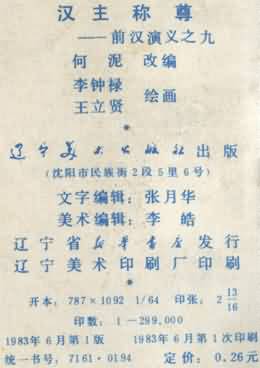 汉主称尊
——前汉演义之九
何泥 改编
李钟禄
王立贤 绘画
辽宁美术出版社出版
(沈阳市民族街2段5里6号)
文字编辑：张月华
美术编辑：李皓
辽宁省新华书店发行
辽宁美术印刷厂印刷
开本：787×1092 1/64 印张：2 13/16
印数：1—299,000
1983年6月第1版 1983年6月第1次印刷
统一书号：7161·0194 定价：0.26元